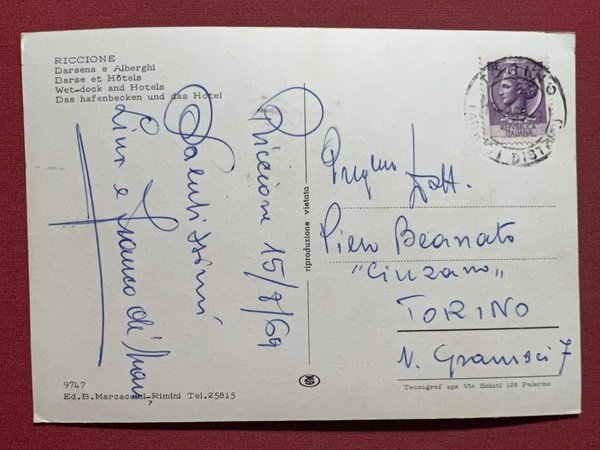 RICCIONE
Darsena e Alberghi
Darse et Hôtels
Wet-dock and Hotels
Das hafenbecken und das Hotel
Riccione 15/7/69
Salutissimi
Lina e Franco
riproduzione vietata
REPVBBLICA
ITALIANA
Dott.
Piero Beanato
"Cinzano"
TORINO
V. Gramsci 7
9747
Ed.B.Marcaccini-Rimini Tel.25815
Tecnograf spa Via Sciuti 128 Palermo